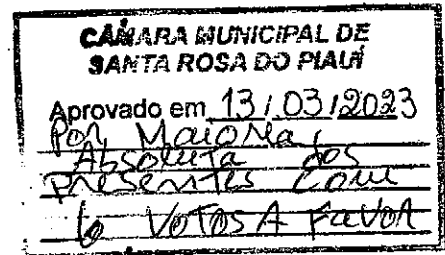 CÂMARA MUNICIPAL DE
SANTA ROSA DO PIAUÍ
Aprovado em 13/03/2023
Por Maioria
Absoluta dos
Presentes com
6 VOTOS A FAVOR